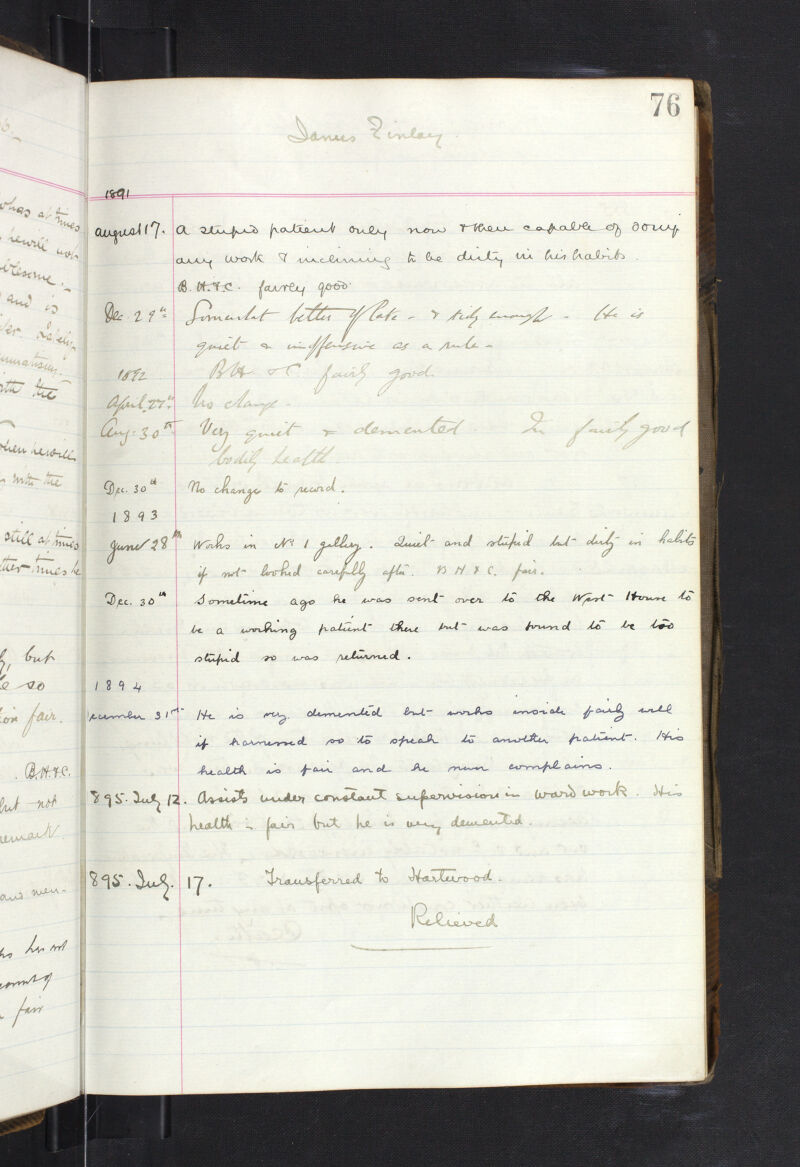 76
James Finlay.
1891
August 17. A stupid patient only now & then capable of doing
any work & inclining to be dirty in his habits.
B.H.&C. fairly good.
Dec. 29th Somewhat better of late - & tidy enough - He is
quiet & inoffensive as a rule -
1892 B H & C fairly good.
April 27th. No change -
Aug. 30th Very quiet & demented. In fairly good
bodily health.
Dec. 30th No change to record.
1893
June 28th Works in No 1 gallery. Quiet and stupid but dirty in habits
if not looked carefully after. B H & C. fair.
Dec. 30th Sometime ago he was sent over to the West House to
be a working patient there but was found to be too
stupid so was returned.
1894
ecember 31st He is very demented but works inside fairly well
if harnessed so to speak to another patient. His
health is fair and he never complains.
895. July 12. Assists under constant supervision in ward work. His
health is fair but he is very demented.
895. July. 17. Transferred to Hartwood.
Relieved
at times
he will not
and is
with the
when he will
with the
still at times
ther times he
but
so
fair.
B.H.&C.
but not
remark
has not
fair